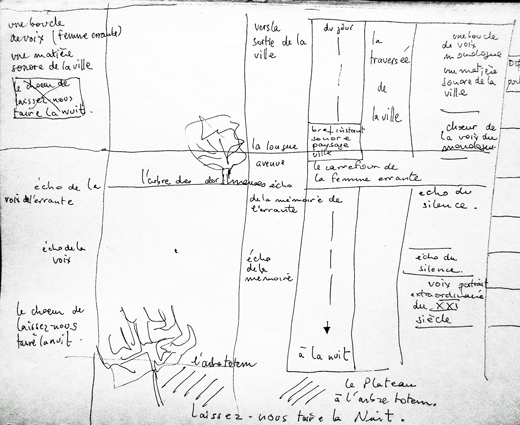 une boucle
de voix (femme errante)
une matière
sonore de la ville
le choeur de
laissez-nous
taire la nuit.
vers la
sortie de la
ville
du jour
la
traversée
de
la ville
une boucle
de voix
monologue
une matière
sonore de la
ville
choeur de
la voix du
monologue
bref instant
sonore
paysage
ville
la longue
avenue
le carrefour de
la femme errante
l'arbre des dormeuses
écho de la
voix de l'errante
écho
de la mémoire de
l'errante
écho du
silence.
écho de la
voix
écho
de la
mémoire
écho du
silence.
voix portrait
extraordinaire
du XXI
siècle
le choeur de
laissez-nous
taire la nuit.
à la nuit
l'arbre totem
le Plateau
à l'arbre totem.
Laissez-nous taire la Nuit.